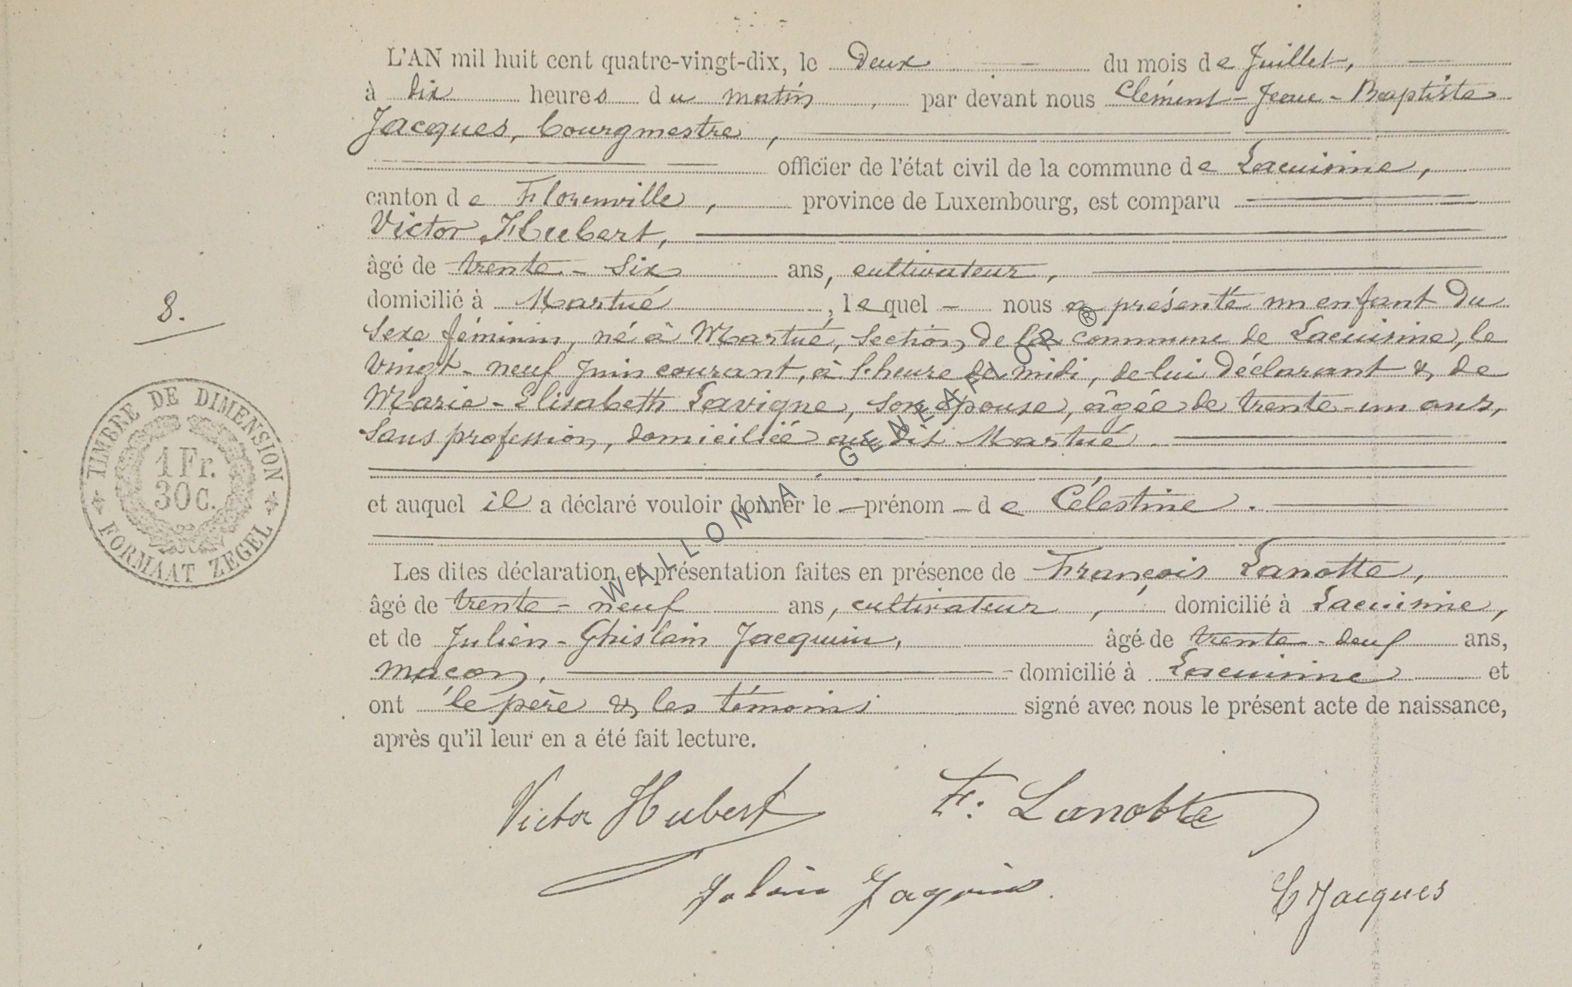 L'AN mil huit cent quatre-vingt-dix, le Deux du mois de Juillet,
à dix heures du matin, par devant nous Clément-Jean-Baptiste
Jacques, bourgmestre,
officier de l'état civil de la commune de Lacuisine,
canton de Florenville, province de Luxembourg, est comparu
Victor Hubert,
âgé de trente-six ans, cultivateur,
domicilié à Martué, lequel nous a présenté un enfant du
sexe féminin, né à Martué, section de la commune de Lacuisine, le
vingt-neuf Juin courant, à heure de midi, de lui déclarant & de
Marie-Elisabeth Lavigne, son épouse, âgée de trente-un ans,
sans profession, domiciliée au dit Martué.
8.
TIMBRE DE DIMENSION
1 Fr.
30 c.
FORMAAT ZEGEL
et auquel il a déclaré vouloir donner le prénom de Célestine.
Les dites déclaration et présentation faites en présence de François Lanotte,
âgé de trente-neuf ans, cultivateur, domicilié à Lacuisine,
et de Julien-Ghislain Jacquin, âgé de trente- ans,
maçon, domicilié à Lacuisine et
ont le père & les témoins signé avec nous le présent acte de naissance,
après qu'il leur en a été fait lecture.
Victor Hubert F. Lanotte
C Jacques
WALLONIA - GENEAFLOR ®